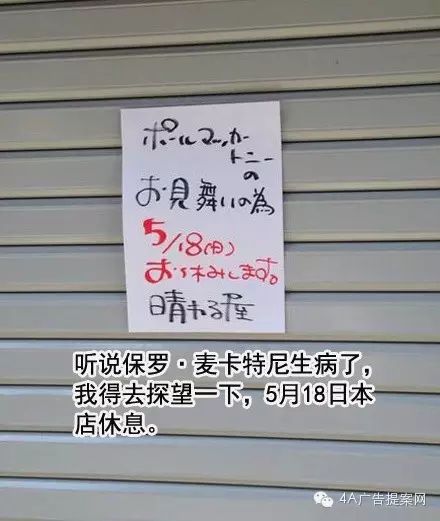 ポールマッカー
トニー
の
お見舞いの為
5/18(日)
お休みします。
晴れる屋
听说保罗·麦卡特尼生病了，
我得去探望一下，5月18日本
店休息。
4A广告提案网